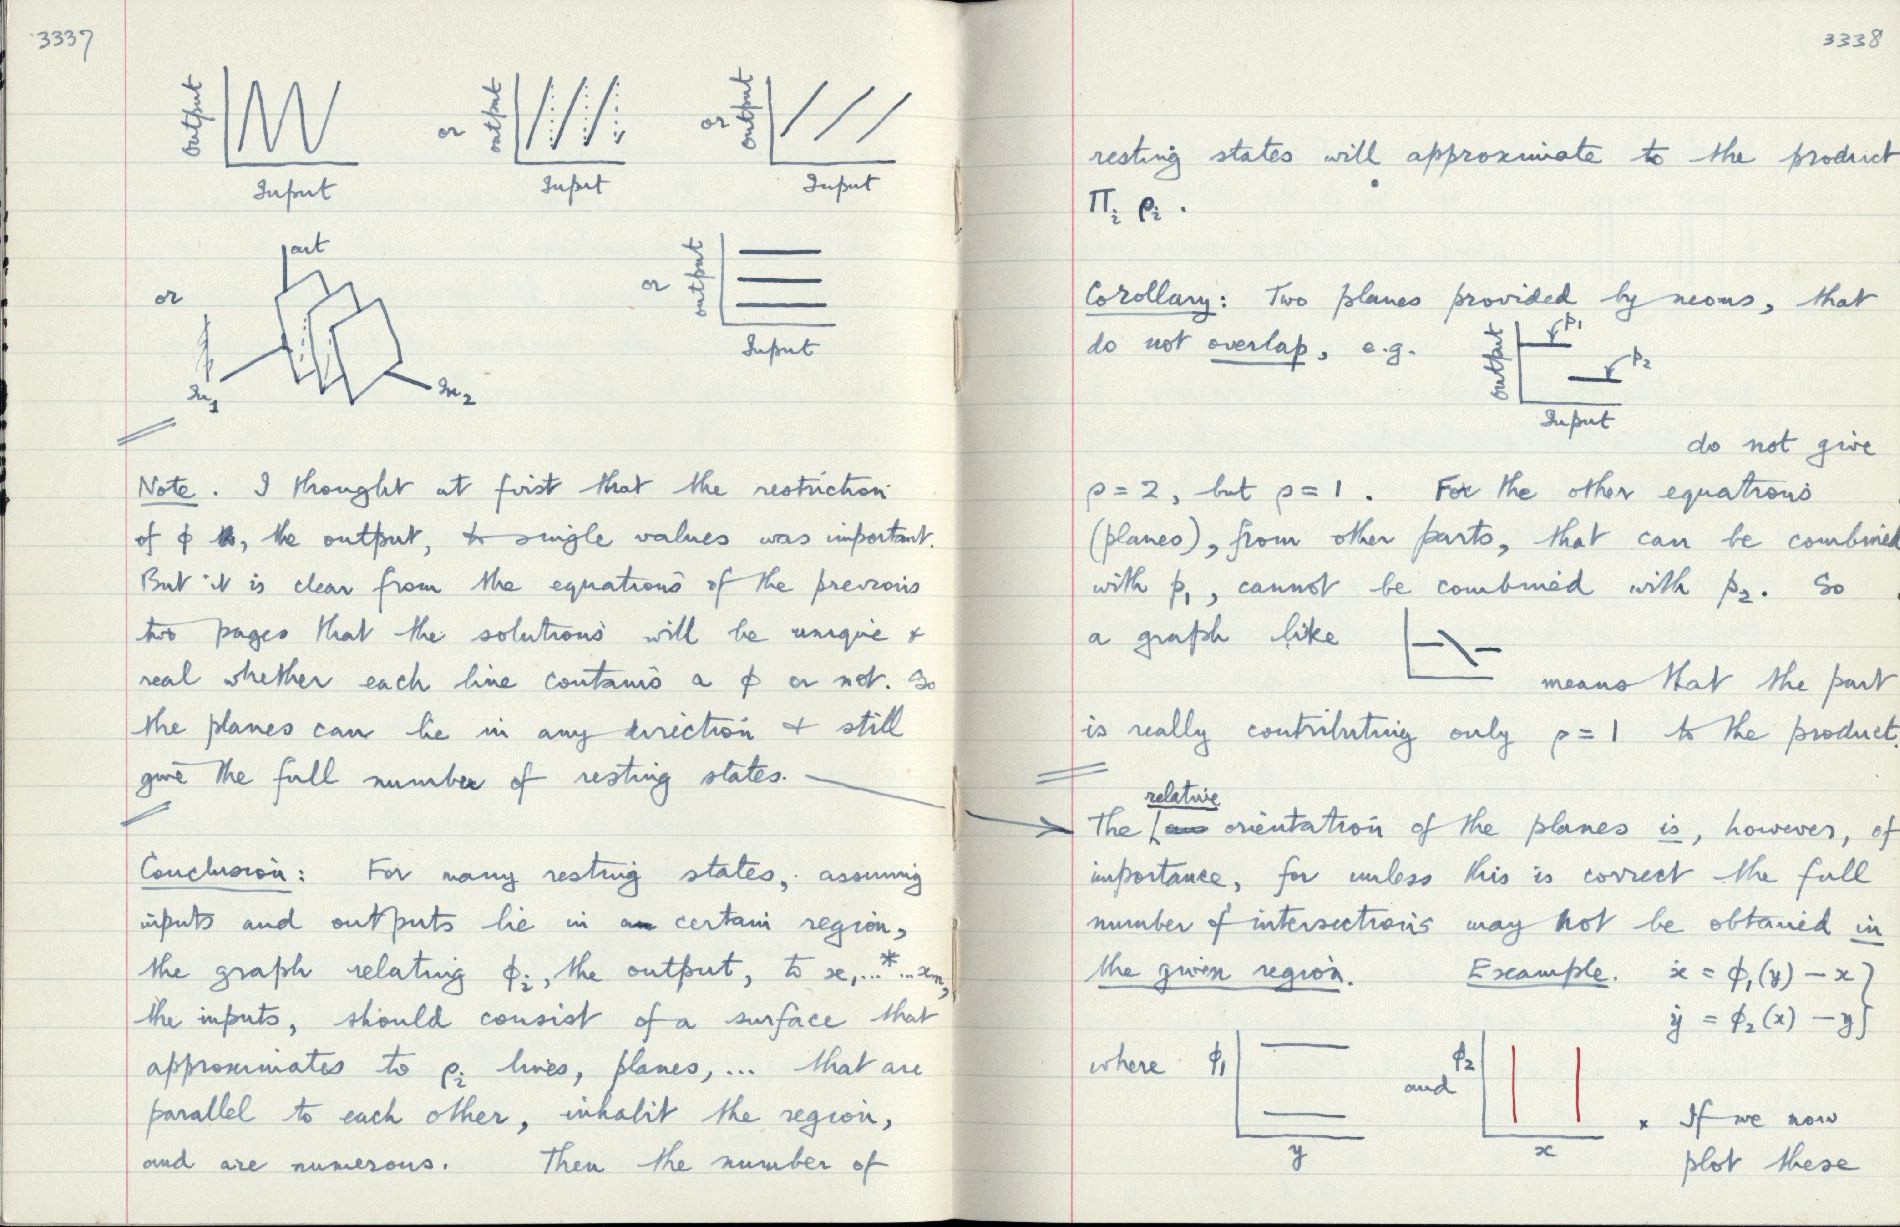 3337
output
Input
or
output
Input
or
output
Input
or
out
In1
In2
or
output
Input
Note. I thought at first that the restriction
of ϕ, the output, to single values was important.
But it is clear from the equations of the previous
two pages that the solutions will be unique &
real whether each line contains a ϕ or not. So
the planes can lie in any direction & still
give the full number of resting states.
Conclusion: For many resting states, assuming
inputs and outputs lie in certain region,
the graph relating ϕi, the output, to x1...*...xn,
the inputs, should consist of a surface that
approximates to ρi lines, planes, ... that are
parallel to each other, inhabit the region,
and are numerous. Then the number of
3338
resting states will approximate to the product
Πi ρi.
Corollary: Two planes provided by neons, that
do not overlap, e.g.
output
p1
p2
Input
do not give
ρ = 2, but ρ = 1. For the other equations
(planes), from other parts, that can be combined
with p1, cannot be combined with p2. So
a graph like
means that the part
is really contributing only ρ = 1 to the product.
relative
The orientation of the planes is, however, of
importance, for unless this is correct the full
number of intersections may not be obtained in
the given region. Example. ẋ = ϕ1(y) − x }
ẏ = ϕ2(x) − y }
where ϕ1
y
and
ϕ2
x
. If we now
plot these